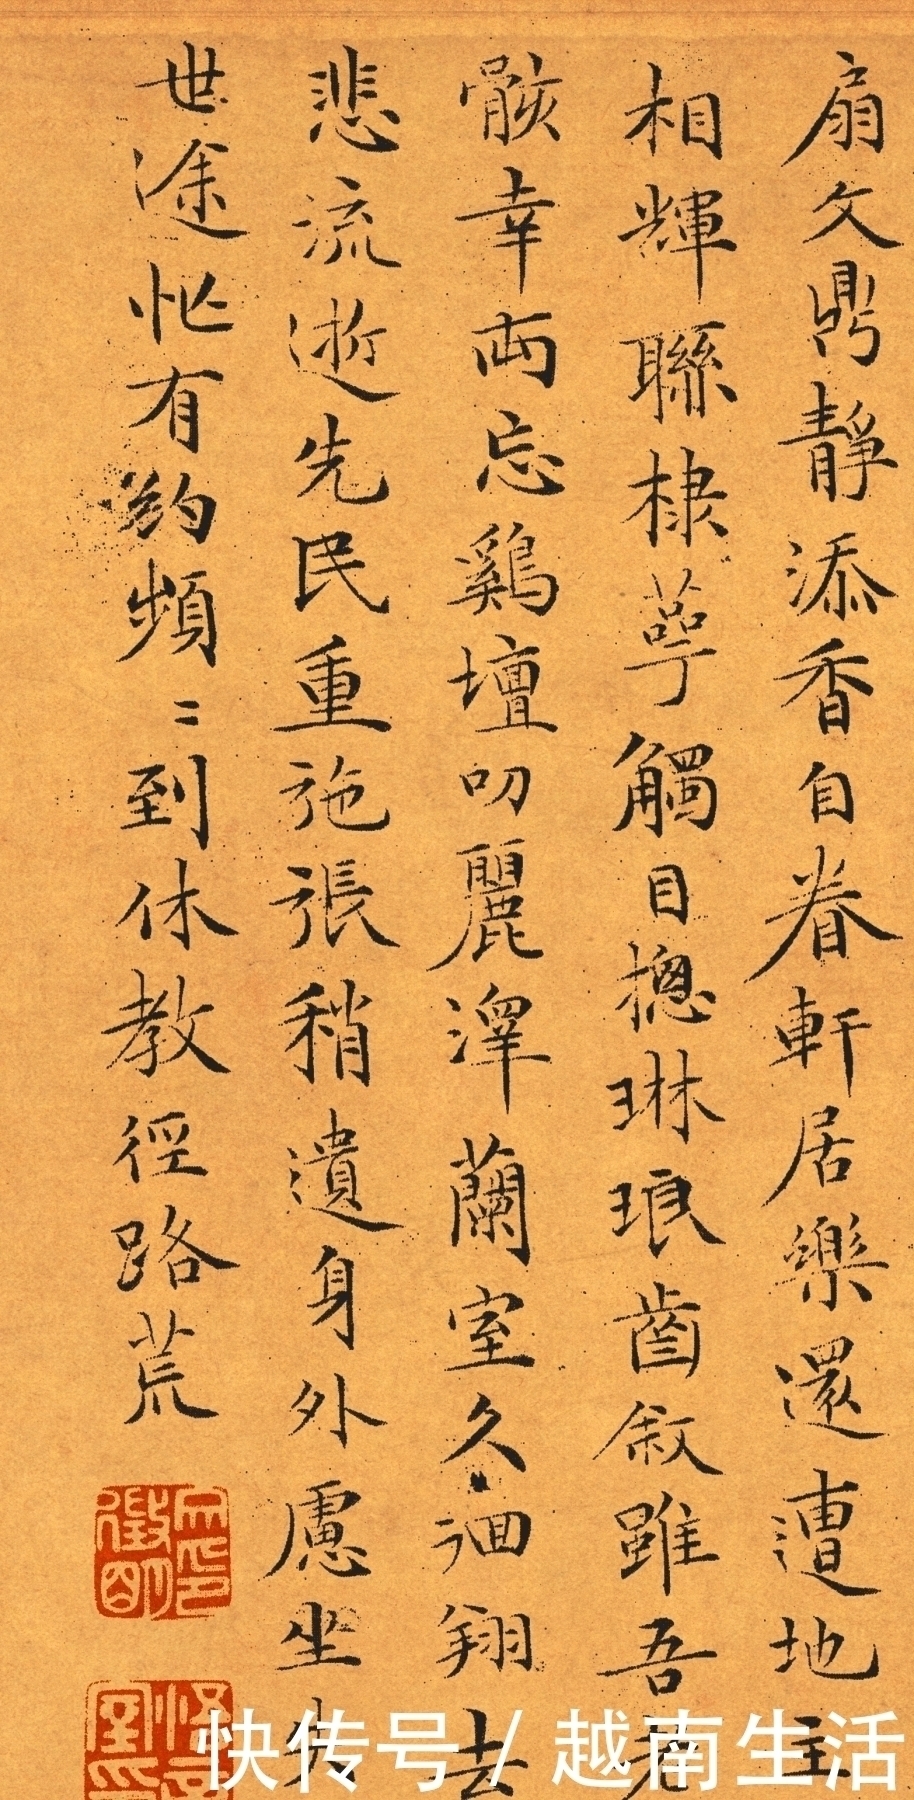 扇文鼎靜添香自眷軒居樂還遭地主
相輝聯棣萼觸目摠琳琅齒敘雖吾君
骸幸兩忘鷄壇叨麗澤蘭室久洄翔去
悲流逝先民重弛張稍遺身外慮坐失
世途忙有約頻〻到休教徑路荒
文徵明印
快传号/越南生活